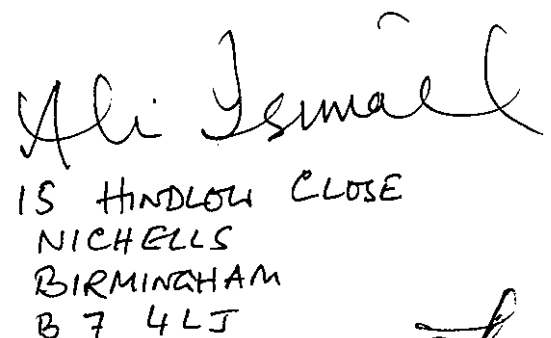 Ali Ismail
15 HINDLOW CLOSE
NICHELLS
BIRMINGHAM
B 7 4 L J